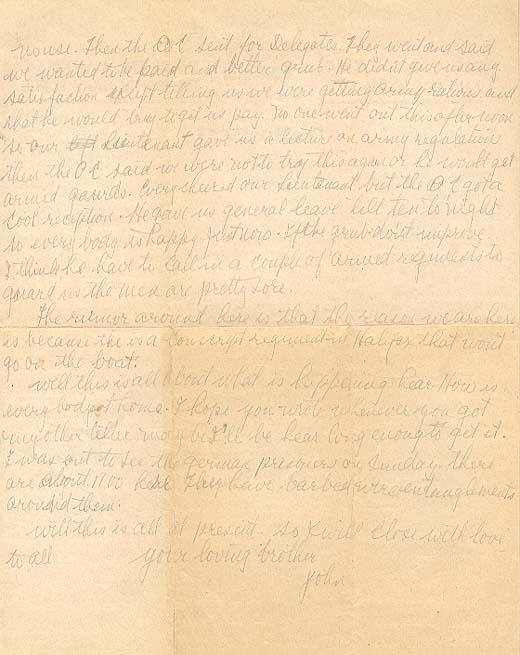 house. Then the OC sent for Delegates. They went and said
we wanted to be paid and better grub. He didn't give us any
satisfaction except telling us we were getting army rations and
that he would try to get us pay. No one went out this after noon
so our Lieutenant gave us a lecture on army regulation
then the OC said we were not to try this again or he would get
armed gaurds. Every cheered our Lieutenant but the OC got a
cool reception. He gave us general leave till ten to night
so every body is happy just now. If the grub dont improve
I think he have to call in a couple of armed regiments to
guard us the men are pretty sore.
The rumor around here is that the reason we are here
is because the is a conscript regiment in Halifax that won't
go on the boat.
Well this is all about what is happening hear How is
every body at home. I hope you wrote whenever you got
my other letter may be I'll be hear long enough to get it.
I was out to see the german prisoners on Sunday. there
are about 1100 here They have barbed wire entanglements
around them.
Well this is all at present so I will close with love
to all your loving brother
John